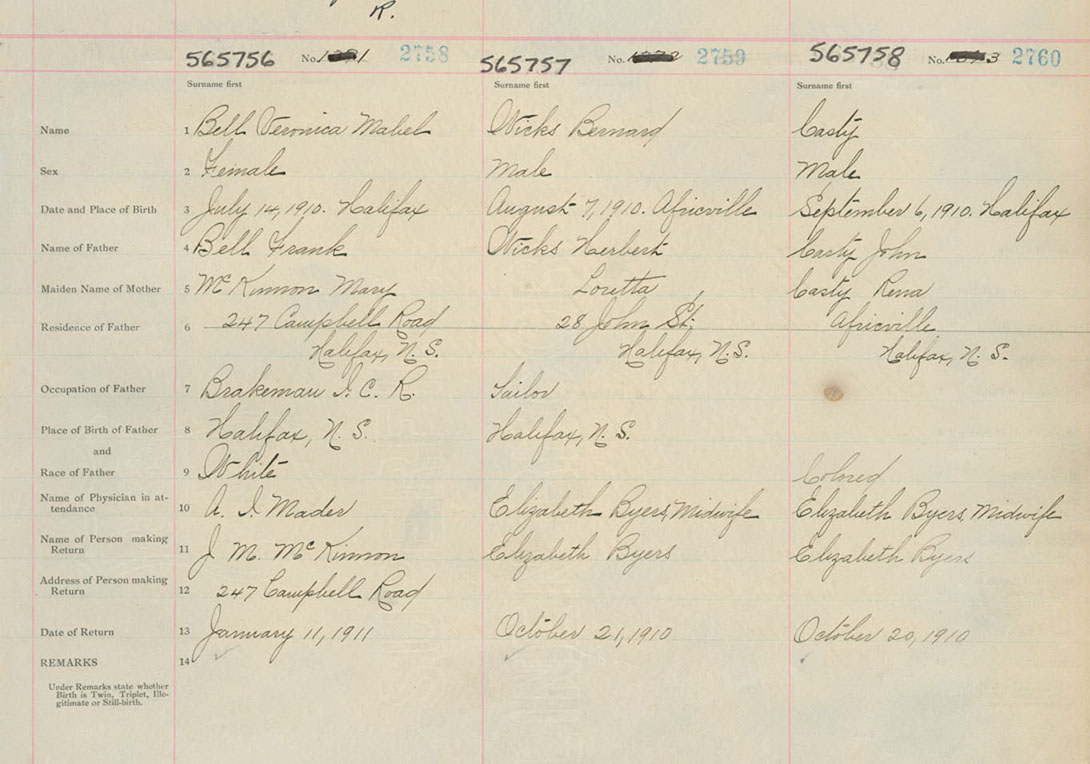 R.
565756 No. 2758 565757 No. 2759 565758 No. 2760
Surname first Surname first Surname first
Name 1 Bell Veronica Mabel Wicks Bernard Casty
Sex 2 Female Male Male
Date and Place of Birth 3 July 14, 1910. Halifax August 7, 1910. Africville September 6, 1910. Halifax
Name of Father 4 Bell Frank Wicks Herbert Casty John
Maiden Name of Mother 5 McKinnon Mary Loretta Casty Rena
Residence of Father 6 247 Campbell Road 28 John St. Africville
Halifax, N.S. Halifax, N.S. Halifax, N.S.
Occupation of Father 7 Brakeman I.C.R. Sailor
Place of Birth of Father 8 Halifax, N.S. Halifax, N.S.
and
Race of Father 9 White Colored
Name of Physician in at-
tendance 10 A. I. Mader Elizabeth Byers, Midwife Elizabeth Byers, Midwife
Name of Person making
Return 11 J M. McKinnon Elizabeth Byers Elizabeth Byers
Address of Person making
Return 12 247 Campbell Road
Date of Return 13 January 11, 1911 October 21, 1910 October 20, 1910
REMARKS 14
Under Remarks state whether
Birth is Twin, Triplet, Ille-
gitimate or Still-birth.